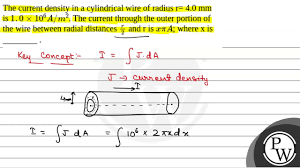 The current density in a cylindrical wire of radius r= 4.0 mm
is 1.0 × 10⁶ A/m². The current through the outer portion of
the wire between radial distances r/2 and r is xπA; where x is
______.
Key Concept:- I = ∫ J dA
J → current density
I
4mm
I = ∫ J dA = ∫ 10⁶ × 2πx dx
PW